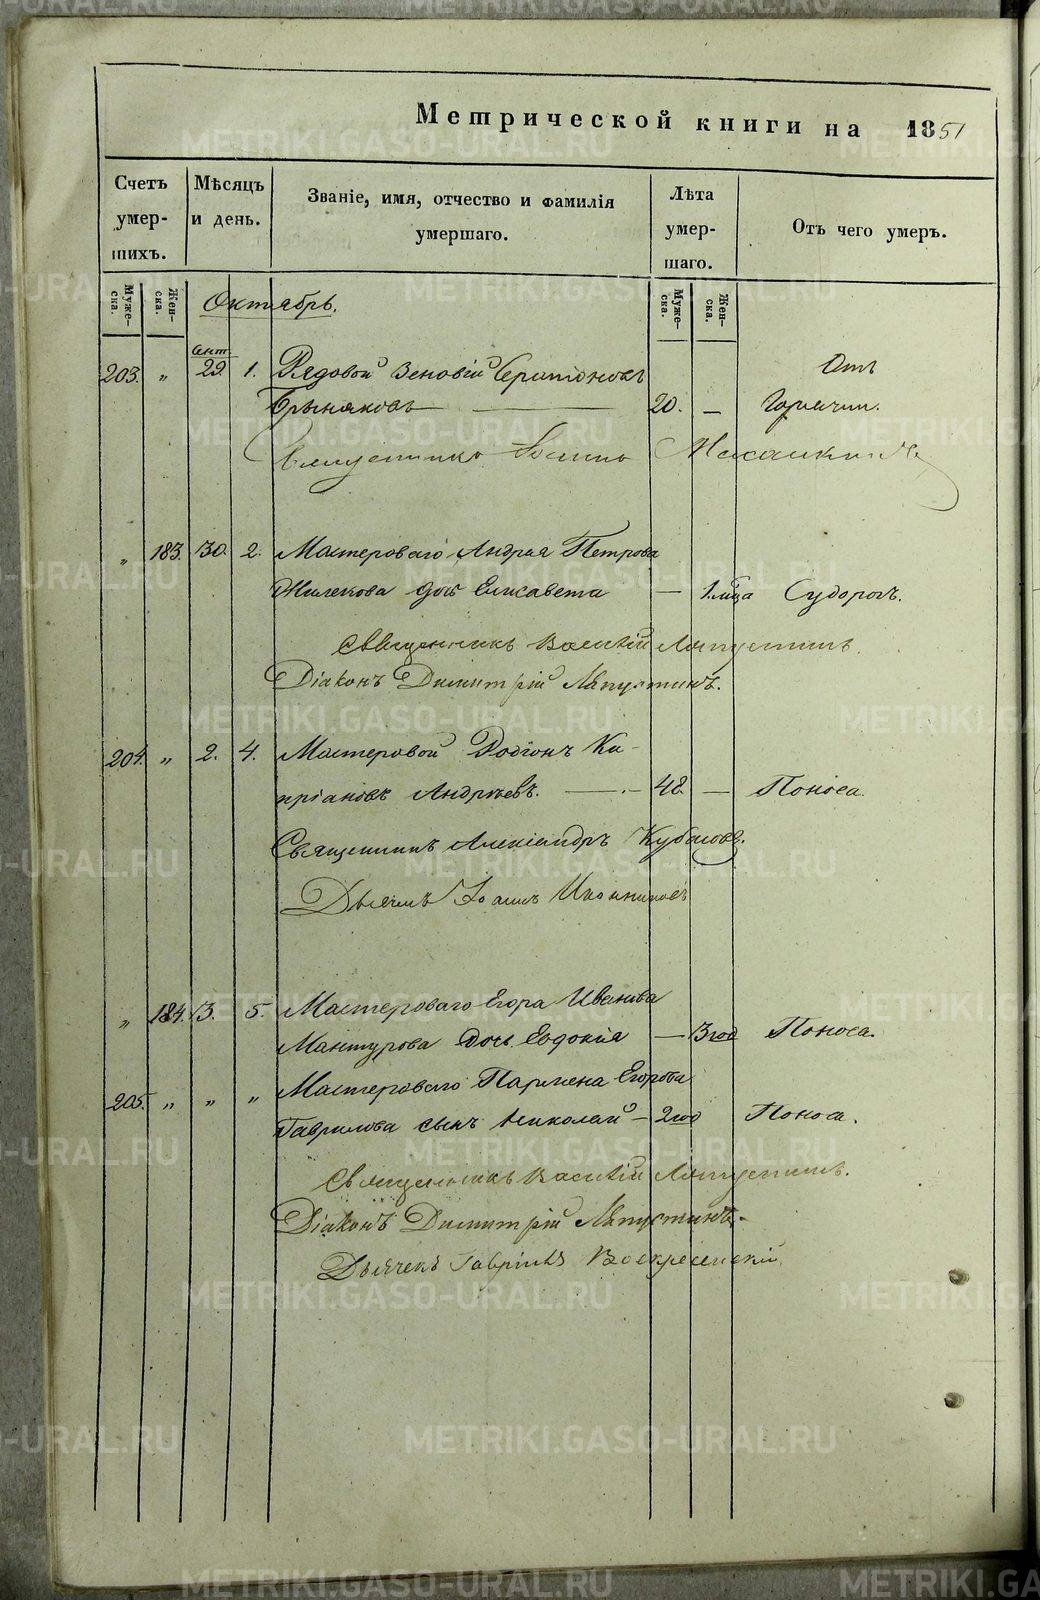 Метрической книги на 1851
Счетъ умер- шихъ.
Мѣсяцъ и день.
Званіе, имя, отчество и фамилія умершаго.
Лѣта умер- шаго.
Отъ чего умеръ.
Муже- ска.
Жен- ска.
Октябрь.
Муже- ска.
Жен- ска.
203. " Сент. 29. 1. Рядовой Зеновій Отъ
20. — Горячки.
" 183. 30. 2. Мастероваго Андрея Петрова
дочь Елисавета — 1. мца Судорогъ.
Священникъ Василій Ляпустинъ.
Діаконъ Димитрій Ляпустинъ.
204. " 2. 4. Мастеровой Родіонъ Ки-
пріановъ Андреевъ. — 48. — Поноса.
Священникъ Александръ
Дьячекъ Іоаннъ Иконниковъ
" 184. 3. 5. Мастероваго Егора Иванова
Мантурова дочь Евдокія — 3 год Поноса.
205. " " " Мастероваго Пармена Егорова
Гаврилова сынъ Николай — 2 год Поноса.
Священникъ Василій Ляпустинъ.
Діаконъ Димитрій Ляпустинъ.
Дьячекъ Гавріилъ Воскресенскій.
METRIKI.GASO-URAL.RU